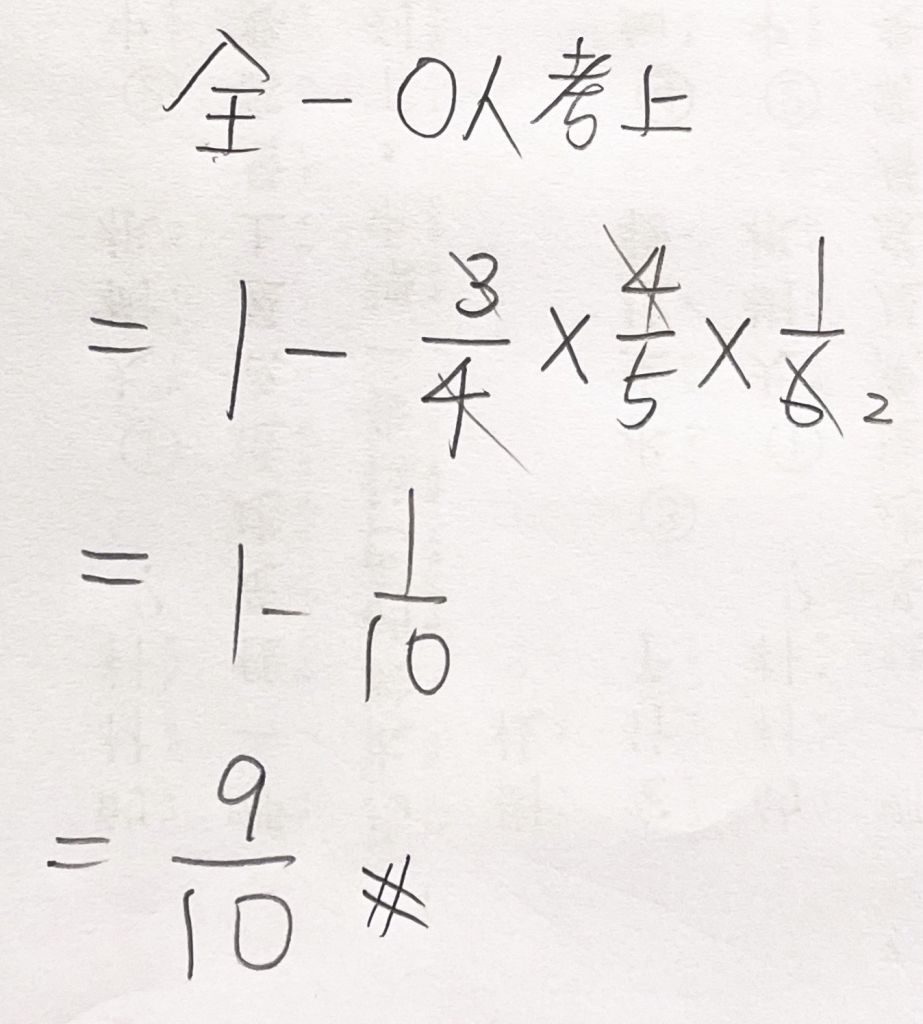 全－0人考上
= 1 - 3/4 × 4/5 × 1/6 2
= 1 - 1/10
= 9/10 #